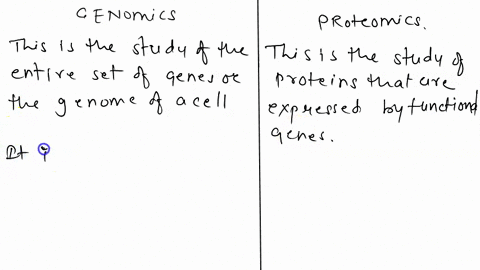 GENOMICS
This is the study of the
entire set of genes or
the genome of a cell
It
PROTEOMICS.
This is the study of
proteins that are
expressed by functional
genes.